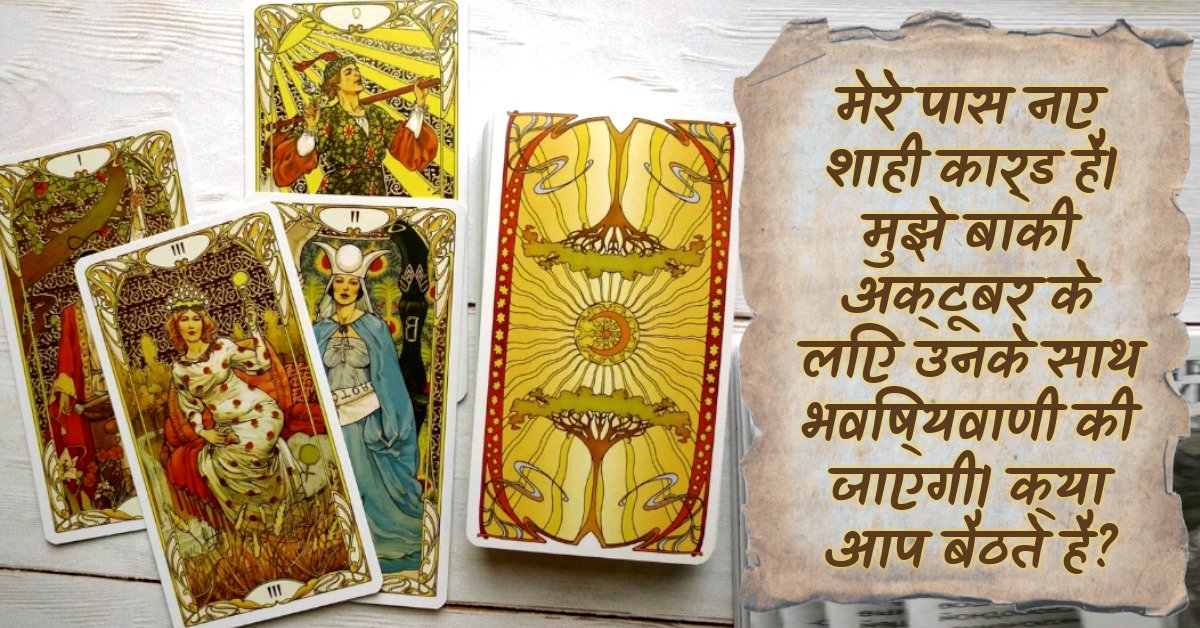 I
II
III
III
मेरे पास नए
शाही कार्ड है।
मुझे बाकी
अक्टूबर के
लिए उनके साथ
भविष्यवाणी की
जाएगी। क्या
आप बैठते है?